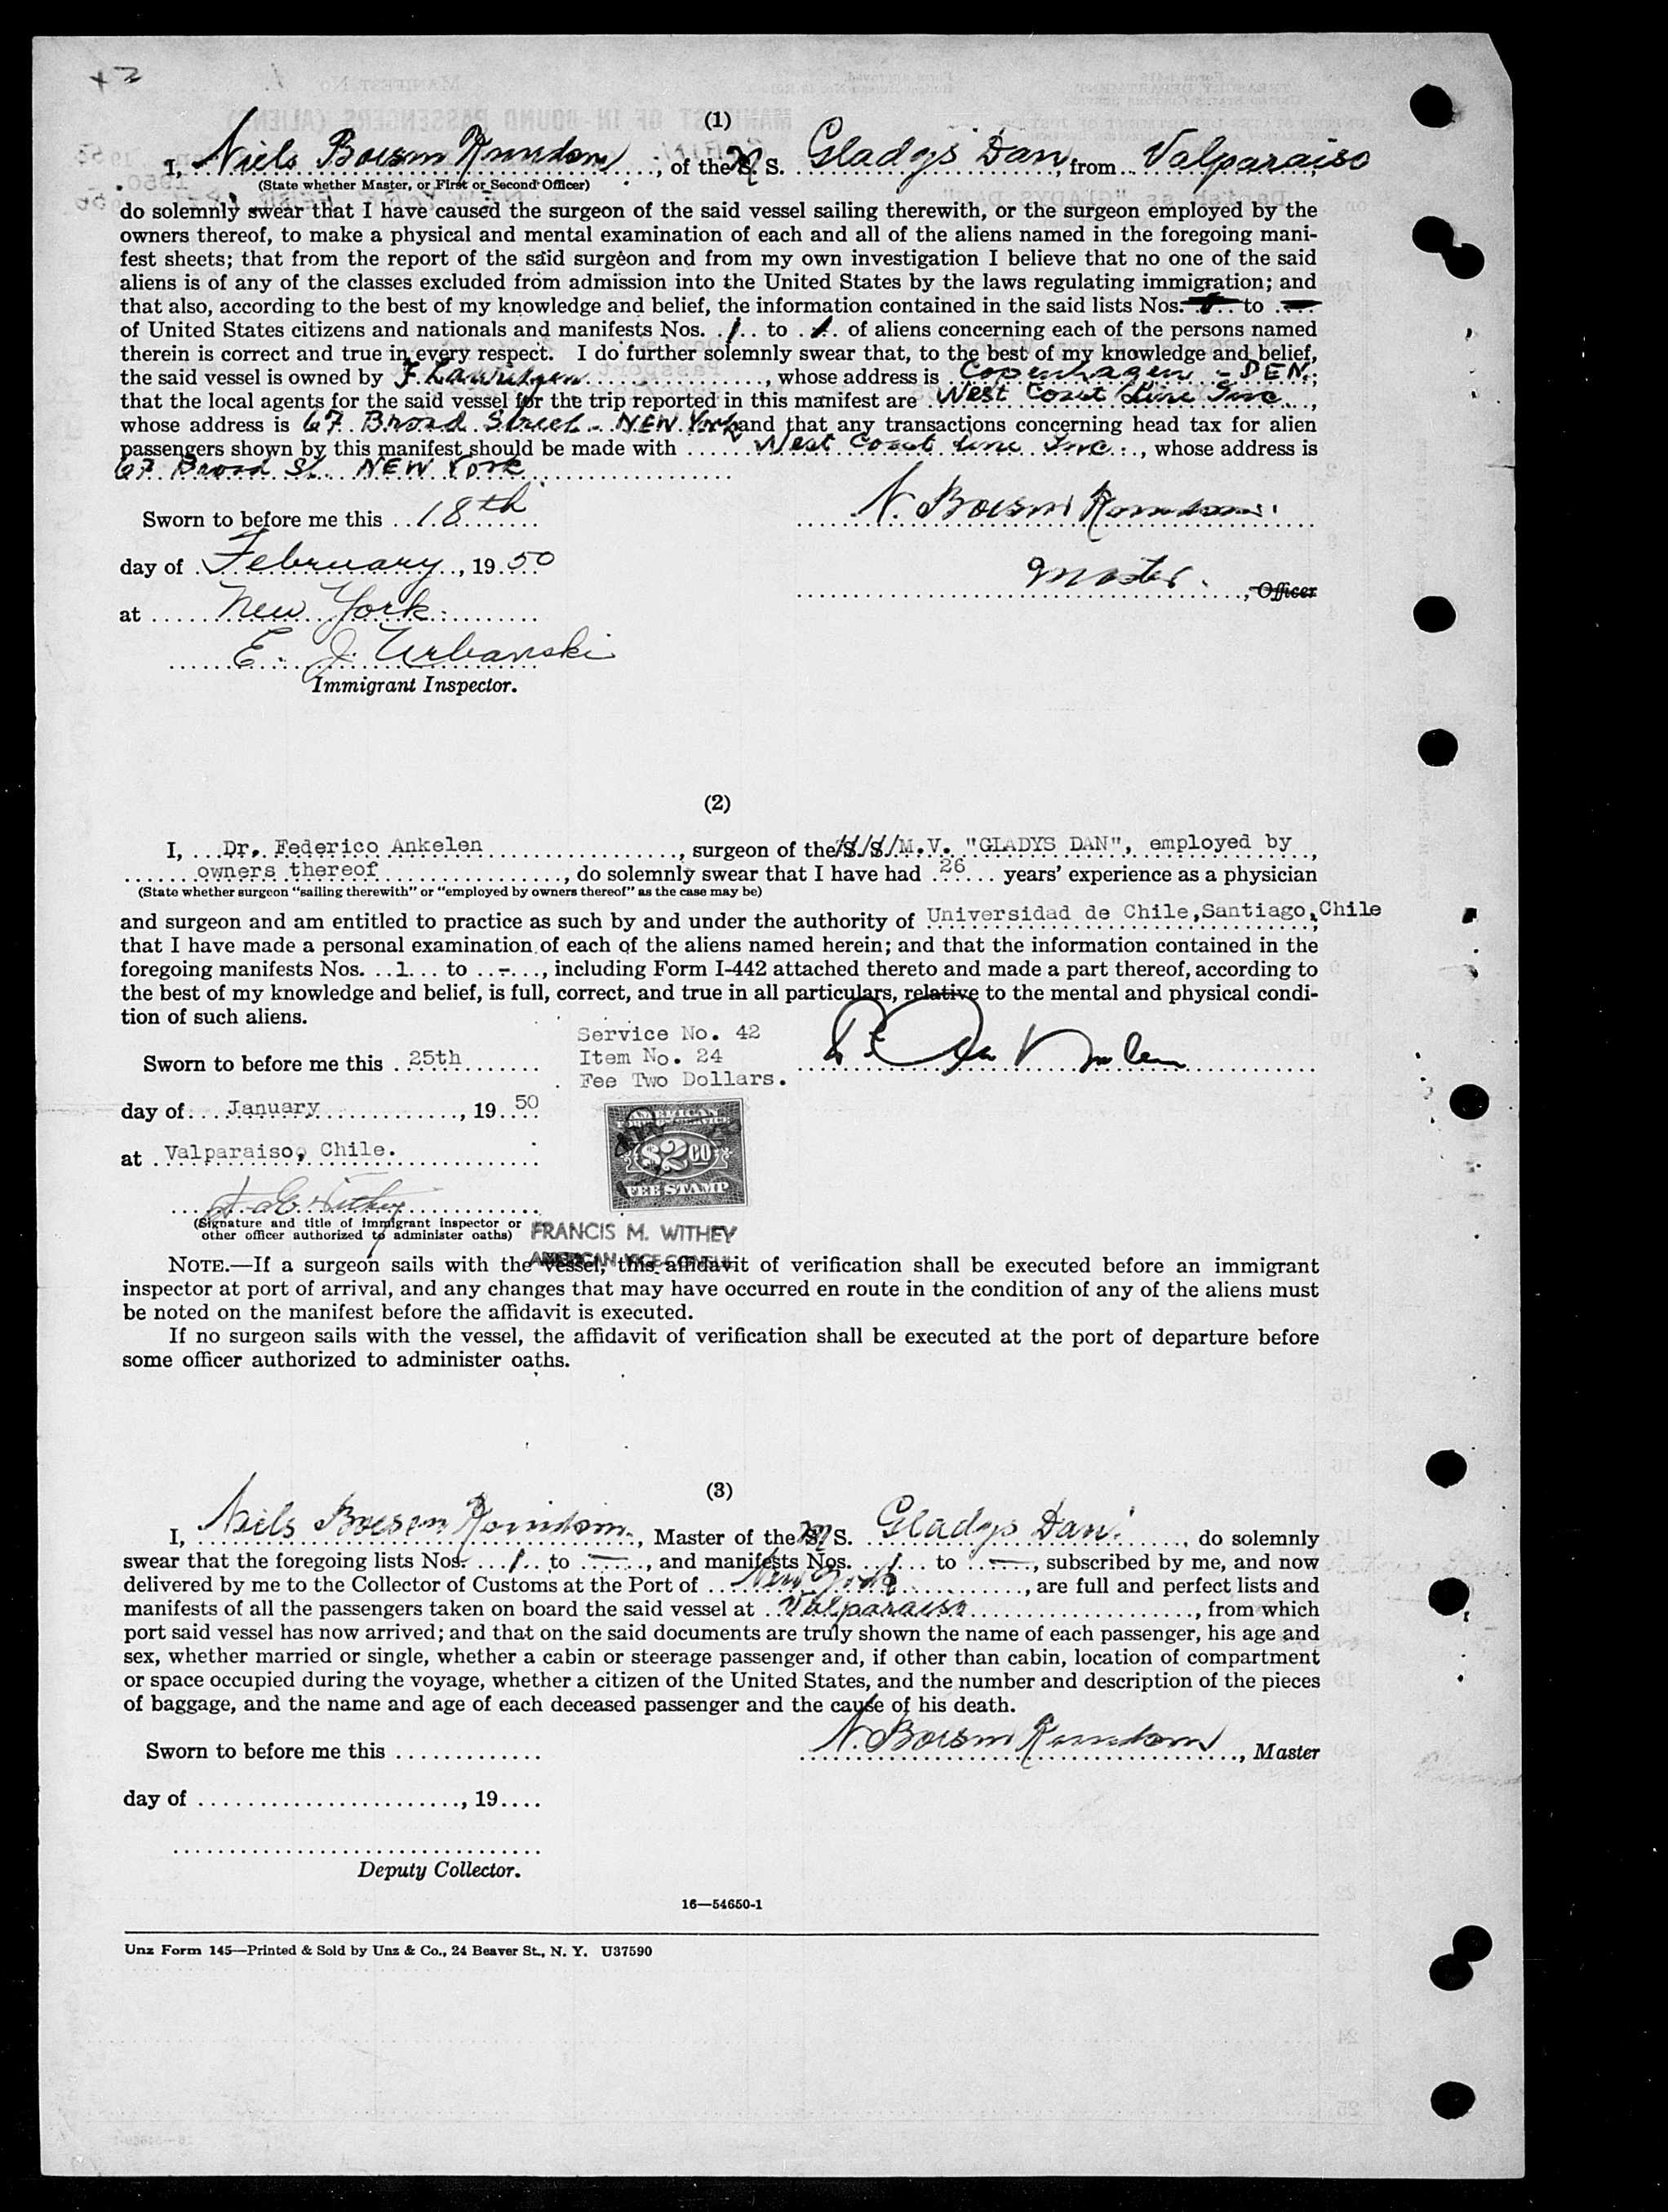 (1)
I, Niels Boesen, of the M. S. Gladys Dan, from Valparaiso
(State whether Master, or First or Second Officer)
do solemnly swear that I have caused the surgeon of the said vessel sailing therewith, or the surgeon employed by the
owners thereof, to make a physical and mental examination of each and all of the aliens named in the foregoing mani-
fest sheets; that from the report of the said surgeon and from my own investigation I believe that no one of the said
aliens is of any of the classes excluded from admission into the United States by the laws regulating immigration; and
that also, according to the best of my knowledge and belief, the information contained in the said lists Nos. to
of United States citizens and nationals and manifests Nos. 1 to 1 of aliens concerning each of the persons named
therein is correct and true in every respect. I do further solemnly swear that, to the best of my knowledge and belief,
the said vessel is owned by J. Lauritzen, whose address is Copenhagen - DEN.;
that the local agents for the said vessel for the trip reported in this manifest are West Coast Line Inc.,
whose address is 67 Broad Street - NEW York and that any transactions concerning head tax for alien
passengers shown by this manifest should be made with West Coast Line Inc., whose address is
67 Broad St. NEW York
Sworn to before me this 18th
N. Boesen
day of February, 1950
Master, Officer
at New York
E. J. Urbanski
Immigrant Inspector.
(2)
I, Dr. Federico Ankelen, surgeon of the S. S. M.V. "GLADYS DAN", employed by,
owners thereof, do solemnly swear that I have had 26 years' experience as a physician
(State whether surgeon "sailing therewith" or "employed by owners thereof" as the case may be)
and surgeon and am entitled to practice as such by and under the authority of Universidad de Chile, Santiago, Chile;
that I have made a personal examination of each of the aliens named herein; and that the information contained in the
foregoing manifests Nos. 1 to -, including Form I-442 attached thereto and made a part thereof, according to
the best of my knowledge and belief, is full, correct, and true in all particulars, relative to the mental and physical condi-
tion of such aliens.
Service No. 42
Item No. 24
Fee Two Dollars.
Sworn to before me this 25th
day of January, 1950
AMERICAN
FOREIGN SERVICE
$2 00
FEE STAMP
at Valparaiso, Chile.
(Signature and title of immigrant inspector or
other officer authorized to administer oaths)
FRANCIS M. WITHEY
AMERICAN VICE CONSUL
NOTE.—If a surgeon sails with the vessel, this affidavit of verification shall be executed before an immigrant
inspector at port of arrival, and any changes that may have occurred en route in the condition of any of the aliens must
be noted on the manifest before the affidavit is executed.
If no surgeon sails with the vessel, the affidavit of verification shall be executed at the port of departure before
some officer authorized to administer oaths.
(3)
I, Niels Boesen, Master of the M S. Gladys Dan, do solemnly
swear that the foregoing lists Nos. 1 to —, and manifests Nos. 1 to —, subscribed by me, and now
delivered by me to the Collector of Customs at the Port of New York, are full and perfect lists and
manifests of all the passengers taken on board the said vessel at Valparaiso, from which
port said vessel has now arrived; and that on the said documents are truly shown the name of each passenger, his age and
sex, whether married or single, whether a cabin or steerage passenger and, if other than cabin, location of compartment
or space occupied during the voyage, whether a citizen of the United States, and the number and description of the pieces
of baggage, and the name and age of each deceased passenger and the cause of his death.
N. Boesen, Master
Sworn to before me this
day of, 19
Deputy Collector.
16—54650-1
Unz Form 145—Printed & Sold by Unz & Co., 24 Beaver St., N. Y. U37590